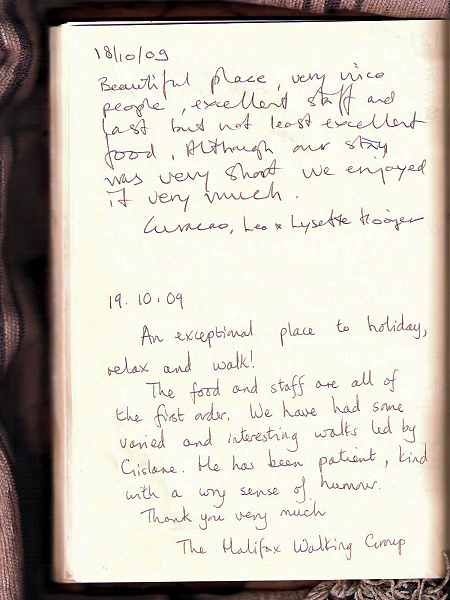 18/10/09
Beautiful place, very nice
people, excellent staff and
last but not least excellent
food. Although our stay
was very short we enjoyed
it very much.
Curacao, Leo & Lysette
19.10.09
An exceptional place to holiday,
relax and walk!
The food and staff are all of
the first order. We have had some
varied and interesting walks led by
Gislane. He has been patient, kind
with a wry sense of humour.
Thank you very much
The Halifax Walking Group